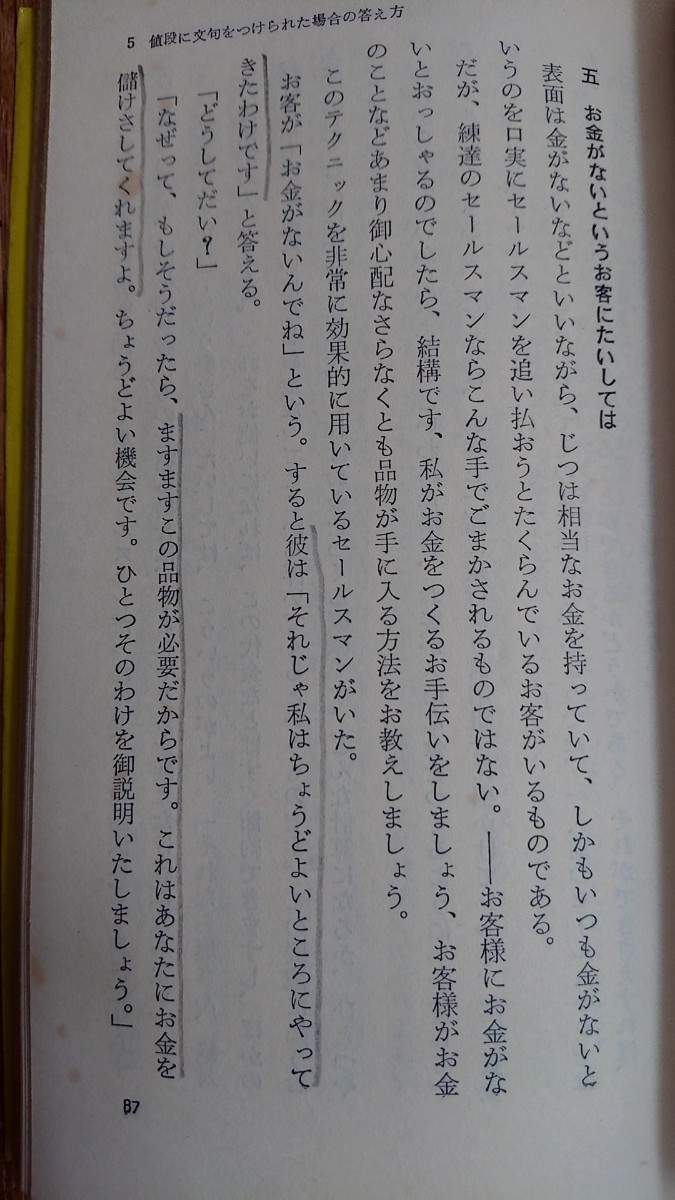 5 値段に文句をつけられた場合の答え方
五 お金がないというお客にたいしては
表面は金がないなどといいながら、じつは相当なお金を持っていて、しかもいつも金がないと
いうのを口実にセールスマンを追い払おうとたくらんでいるお客がいるものである。
だが、練達のセールスマンならこんな手でごまかされるものではない。――お客様にお金がな
いとおっしゃるのでしたら、結構です、私がお金をつくるお手伝いをしましょう、お客様がお金
のことなどあまり御心配なさらなくとも品物が手に入る方法をお教えしましょう。
このテクニックを非常に効果的に用いているセールスマンがいた。
お客が「お金がないんでね」という。すると彼は「それじゃ私はちょうどよいところにやって
きたわけです」と答える。
「どうしてだい?」
「なぜって、もしそうだったら、ますますこの品物が必要だからです。これはあなたにお金を
儲けさしてくれますよ。ちょうどよい機会です。ひとつそのわけを御説明いたしましょう。」
87